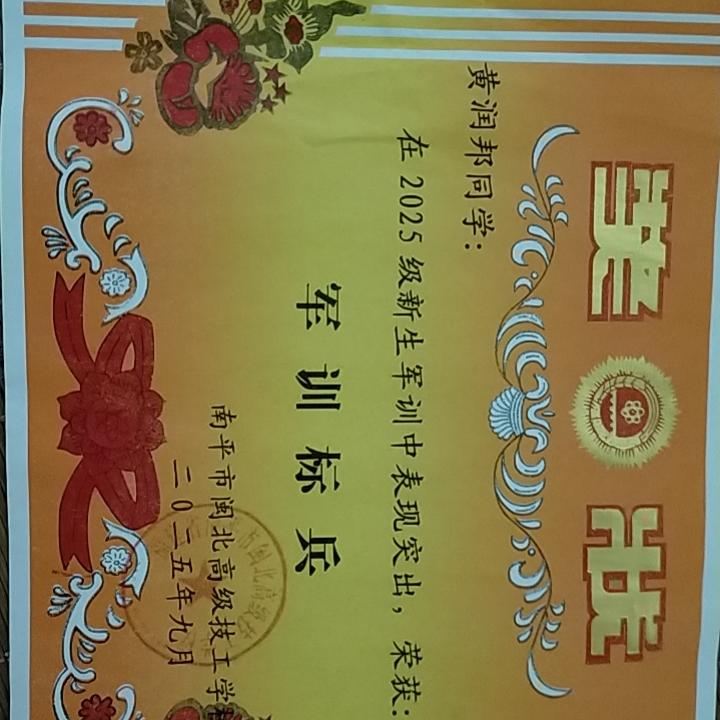 奖状
黄润邦同学:
在2025级新生军训中表现突出,荣获:
军训标兵
南平市闽北高级技工学
二0二五年九月